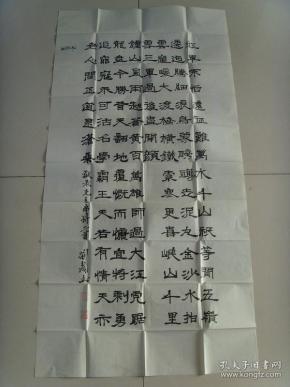 紅軍不怕遠征難萬水千山祇等閒五嶺
逶迤騰細浪烏蒙磅礴走泥丸金沙水拍
雲崖暖大渡橋橫鐵索寒更喜岷山千里
雪三軍過後盡開顏
鐘山風雨起蒼黃百萬雄師過大江虎踞
龍盤今勝昔天翻地覆慨而慷宜將剩勇
追窮寇不可沽名學霸王天若有情天亦
老人間正道是滄桑
孔夫子旧书网